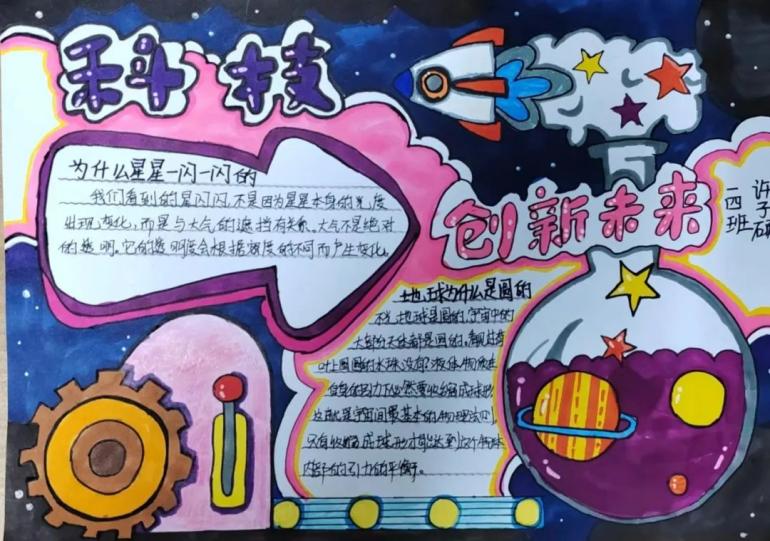 科技
为什么星星一闪一闪的
我们看到的星闪闪,不是因为星星本身的光度
出现变化,而是与大气的遮挡有关系、大气不是绝对
的透明。它的透明度会根据密度的不同而产生变化。
创新未来
许子研
四一班
地球为什么是圆的
不光地球是圆的,宇宙中的
大部分天体都是圆的。
叶上圆圆的水珠没有
自身的引力
这就是宇宙间最基本的物理法则
只有收缩成球形才能达到这个物体
内部的引力的平衡。